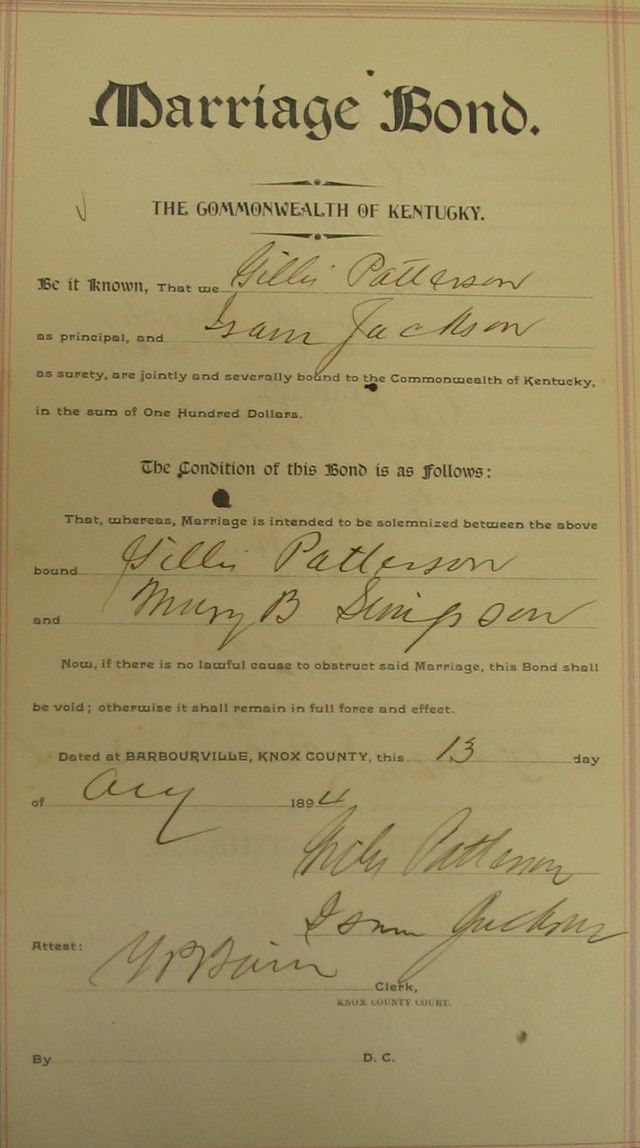 Marriage Bond.
THE COMMONWEALTH OF KENTUCKY.
Be it known, That we Gillis Patterson
as principal, and Isam Jackson
as surety, are jointly and severally bound to the Commonwealth of Kentucky,
in the sum of One Hundred Dollars.
The Condition of this Bond is as Follows:
That, whereas, Marriage is intended to be solemnized between the above
bound Gillis Patterson
and Mary B Simpson
Now, if there is no lawful cause to obstruct said Marriage, this Bond shall
be void; otherwise it shall remain in full force and effect.
Dated at BARBOURVILLE, KNOX COUNTY, this 13 day
of Aug 1894
Patterson
Isam Jackson
Attest:
Clerk,
KNOX COUNTY COURT.
By D. C.